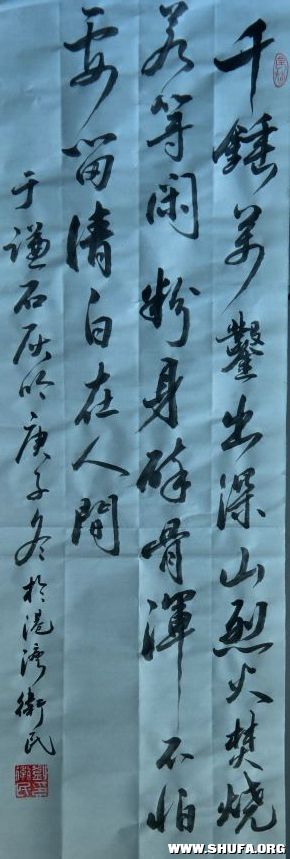 千錘萬鑿出深山烈火焚燒
若等闲粉身碎骨渾不怕
要留清白在人間
于谦石灰吟庚子冬於港湾衛民
WWW.SHUFA.ORG